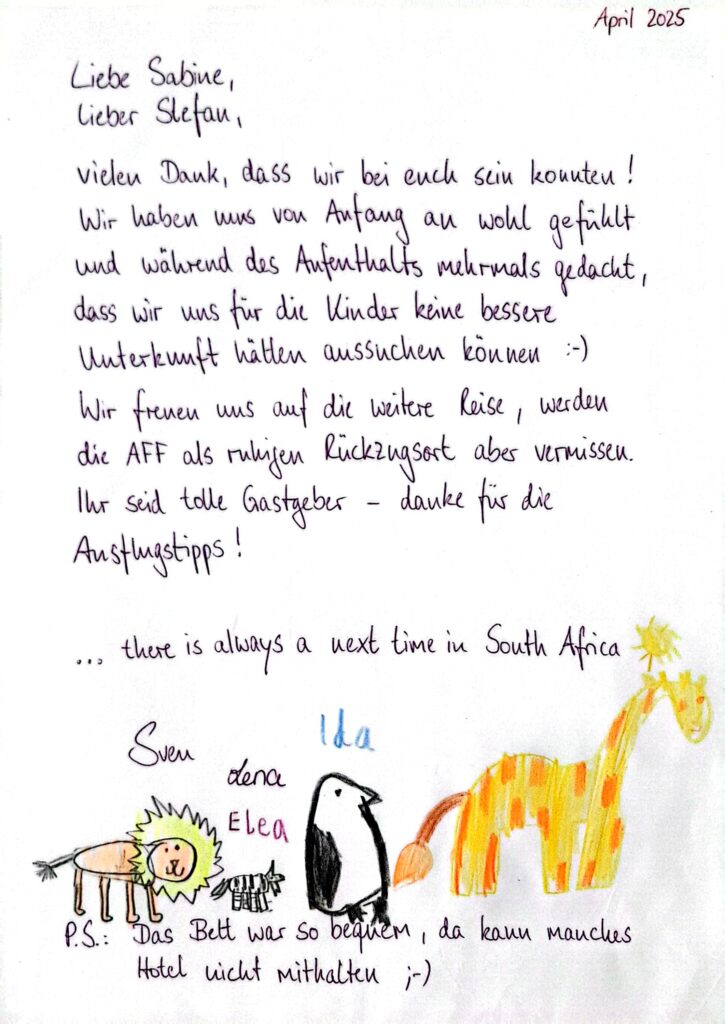 April 2025
Liebe Sabine,
Lieber Stefan,
vielen Dank, dass wir bei euch sein konnten!
Wir haben uns von Anfang an wohl gefühlt
und während des Aufenthalts mehrmals gedacht,
dass wir uns für die Kinder keine bessere
Unterkunft hätten aussuchen können :-)
Wir freuen uns auf die weitere Reise, werden
die AFF als ruhigen Rückzugsort aber vermissen.
Ihr seid tolle Gastgeber – danke für die
Ausflugstipps!
... there is always a next time in South Africa
Sven
Lena
Elea
Ida
P.S.: Das Bett war so bequem, da kann manches
Hotel nicht mithalten ;-)